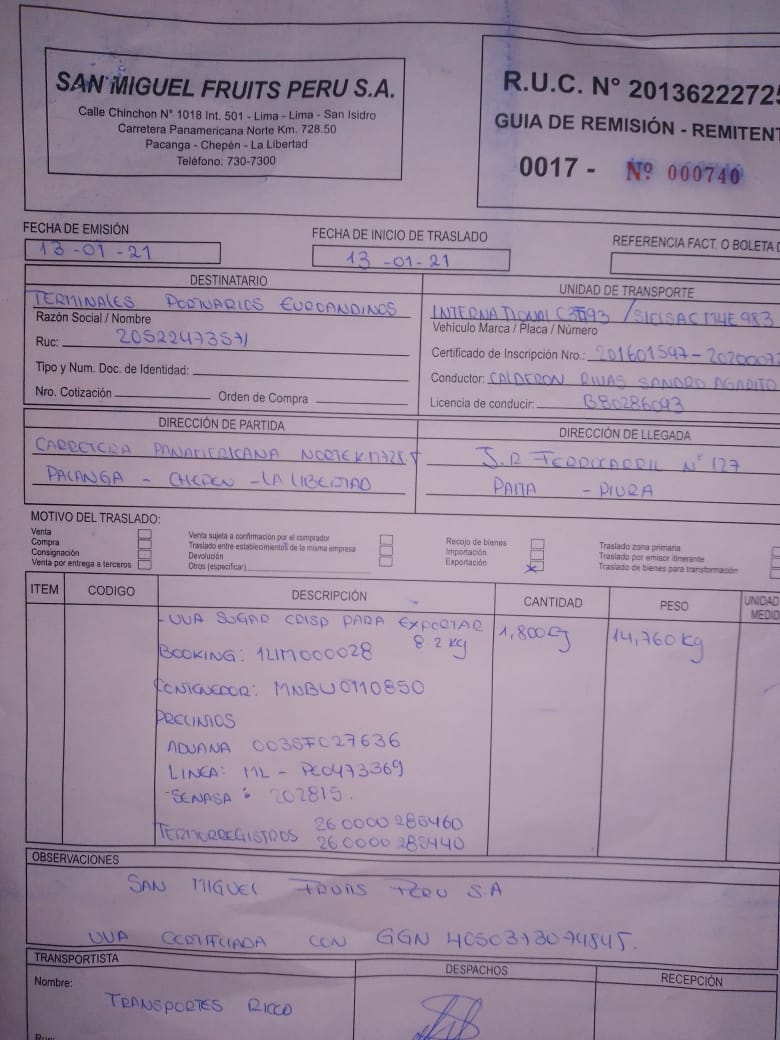 SAN MIGUEL FRUITS PERU S.A.
Calle Chinchon N° 1018 Int. 501 - Lima - Lima - San Isidro
Carretera Panamericana Norte Km. 728.50
Pacanga - Chepén - La Libertad
Teléfono: 730-7300
R.U.C. N° 20136222725
GUIA DE REMISIÓN - REMITENT
0017 - Nº 000740
FECHA DE EMISIÓN
13-01-21
FECHA DE INICIO DE TRASLADO
13-01-21
REFERENCIA FACT. O BOLETA D
DESTINATARIO
TERMINALES PORTUARIOS EUROANDINOS
Razón Social / Nombre
Ruc: 20522473571
Tipo y Num. Doc. de Identidad:
Nro. Cotización Orden de Compra
UNIDAD DE TRANSPORTE
INTERNATIONAL / M4E983
Vehículo Marca / Placa / Número
Certificado de Inscripción Nro.: 201601597-
Conductor: CALDERON RIVAS SANDRO AGAPITO
Licencia de conducir: B80286093
DIRECCIÓN DE PARTIDA
CARRETERA PANAMERICANA NORTE
PACANGA - CHEPEN - LA LIBERTAD
DIRECCIÓN DE LLEGADA
J.R FERROCARRIL N° 127
PAITA - PIURA
MOTIVO DEL TRASLADO:
Venta
Compra
Consignación
Venta por entrega a terceros
Venta sujeta a confirmación por el comprador
Traslado entre establecimientos de la misma empresa
Devolución
Otros (especificar)
Recojo de bienes
Importación
Exportación X
Traslado zona primaria
Traslado por emisor itinerante
Traslado de bienes para transformación
ITEM CODIGO DESCRIPCIÓN CANTIDAD PESO UNIDAD MEDID
- UVA SUGAR CRISP PARA EXPORTAR 1,800 14,760 kg
8.2 kg
BOOKING: 1LIM000028
CONTENEDOR: MNBU0110850
PRECINTOS
ADUANA 003SFC27636
LINEA: ML - PE0473369
- SENASA : 202815.
TERMORREGISTROS 26 0000 285460
26 0000 285440
OBSERVACIONES
SAN MIGUEL FRUITS PERU S.A
UVA CERTIFICADA CON GGN 4050373074845.
TRANSPORTISTA
Nombre:
TRANSPORTES RICCO
Ruc:
DESPACHOS
RECEPCIÓN